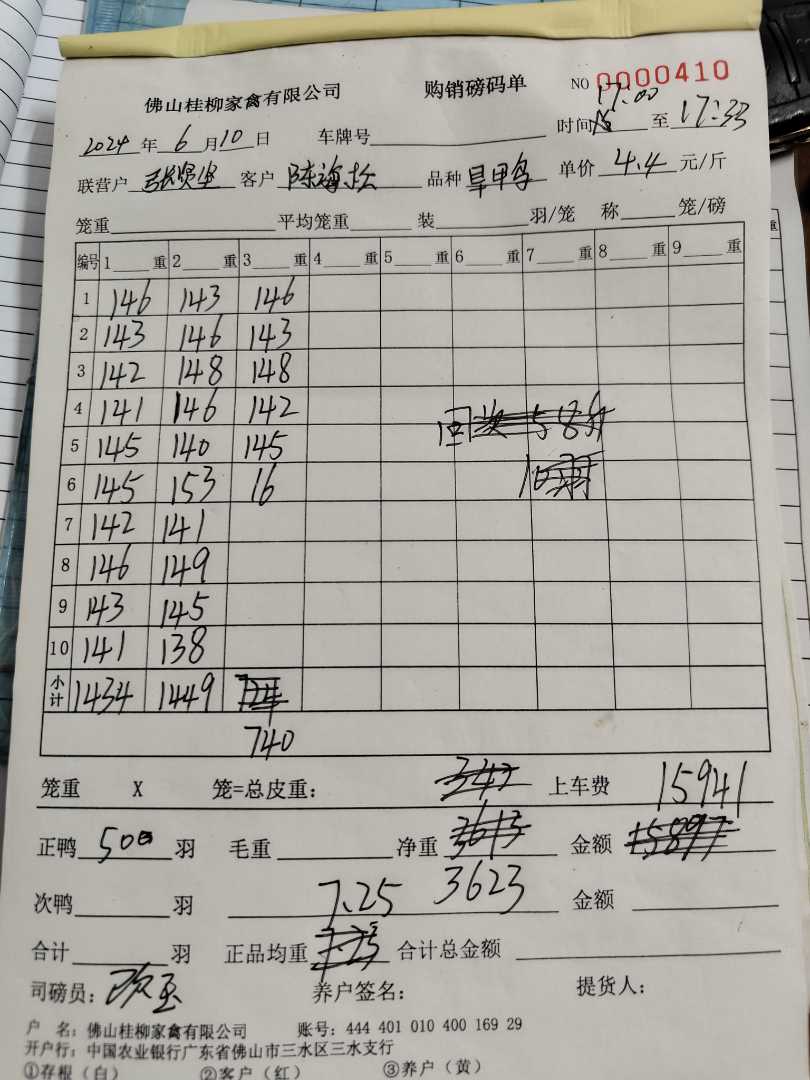 佛山桂柳家禽有限公司 购销磅码单 NO 0000410
2024年6月10日 车牌号 时间 17:00 至 17:33
联营户 张贤坐 客户 陈海松 品种 旱甲鸟 单价 4.4 元/斤
笼重 平均笼重 装 羽/笼 称 笼/磅
编号 1 重 2 重 3 重 4 重 5 重 6 重 7 重 8 重 9 重
1 146 143 146
2 143 146 143
3 142 148 148
4 141 146 142
5 145 140 145
6 145 153 16
7 142 141
8 146 149
9 143 145
10 141 138
小计 1434 1449
740
笼重 X 笼=总皮重: 上车费 15941
正鸭 500 羽 毛重 净重 3613 金额 15897
次鸭 羽 7.25 3623 金额
合计 羽 正品均重 合计总金额
司磅员: 养户签名: 提货人:
户 名: 佛山桂柳家禽有限公司 账号: 444 401 010 400 169 29
开户行: 中国农业银行广东省佛山市三水区三水支行
①存根(白) ②客户(红) ③养户(黄)